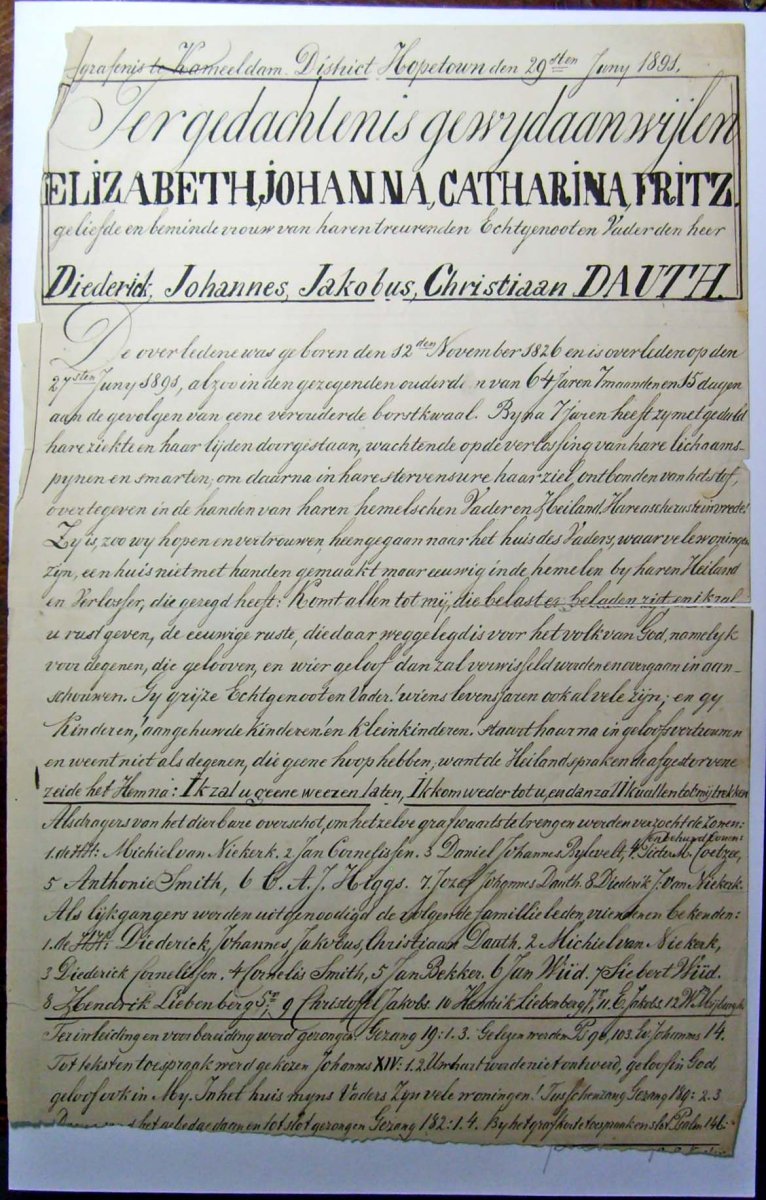 grafenis te Kameeldam. District Hopetown den 29sten Juny 1891.
Ter gedachtenis gewyd aan wijlen
ELIZABETH, JOHANNA, CATHARINA, FRITZ.
geliefde en beminde vrouw van haren treurenden Echtgenoot en Vader den heer
Diederick, Johannes, Jakobus, Christiaan DAUTH.
De overledene was geboren den 12den November 1826 en is overleden op den
27sten Juny 1891, alzoo in den gezegenden ouderdom van 64 Jaren 7 maanden en 15 dagen
aan de gevolgen van eene verouderde borstkwaal. Byna 7 jaren heeft zy met geduld
hare ziekte en haar lijden doorgestaan, wachtende op de verlossing van hare lichaams-
pynen en smarten, om daarna in hare stervensure haar ziel, ontbonden van het stof,
over te geven in de handen van haren hemelschen Vader en Heiland. Hare asche ruste in vrede!
Zy is, zoo wy hopen en vertrouwen, heengegaan naar het huis des Vaders, waar vele woningen
zijn, een huis niet met handen gemaakt maar eeuwig in de hemelen by haren Heiland
en Verlosser, die gezegd heeft: Komt allen tot mij, die belast en beladen zijt en ik zal
u rust geven, de eeuwige ruste, die daar weggelegd is voor het volk van God, namelyk
voor degenen, die gelooven, en wier geloof dan zal verwisseld worden en overgaan in aan-
schouwen. Gy grijze Echtgenoot en Vader! wiens levensjaren ook al vele zijn; en gy
Kinderen, aangehuwde kinderen! en Kleinkinderen. staart haar na in geloofsvertrouwen
en weent niet als degenen, die geene hoop hebben, want de Heiland sprak en de afgestorvene
zeide het Hem na: Ik zal u geene weezen laten, Ik kom weder tot u, en dan zal Ik u allen tot mij trekken
Als dragers van het dierbare overschot, om hetzelve grafwaarts te brengen worden verzocht de zonen:
en behuwd zonen:
1. de HH: Michiel van Niekerk. 2 Jan Cornelissen. 3 Daniel Johannes Bylevelt, 4. Pieter M. Coetzee,
5 Anthonie Smith, 6 C. A. J. Higgs. 7. Jozef Johannes Dauth. 8 Diederik J. van Niekerk.
Als lijkgangers worden uitgenoodigd de volgende famillieleden, vrienden en bekenden:
1. de HH: Diederick, Johannes, Jakobus, Christiaan Dauth. 2 Michiel van Niekerk,
3 Diederick Cornelissen. 4 Cornelis Smith, 5 Jan Bekker. 6 Jan Wiid. 7 Siebert Wiid.
8 Hendrik Liebenberg Sr. 9 Christoffel Jakobs. 10 Hendrik Liebenberg Jr. 11. E. Jakobs 12 W. Mijburgh.
Ter inleiding en voorbereiding werd gezongen Gezang 19: 1. 3. Gelezen werden Ps 90, 103. Ev Johannes 14.
Tot tekst en toespraak werd gekozen Johannes XIV: 1. 2. Uw hart worde niet ontroerd, geloof in God,
geloof ook in My. In het huis myns Vaders Zyn vele woningen! Tusschenzang Gezang 180: 2. 3
het gebed gedaan en tot slot gezongen Gezang 182: 1. 4. By het graf korte toespraak en slot Psalm 146: